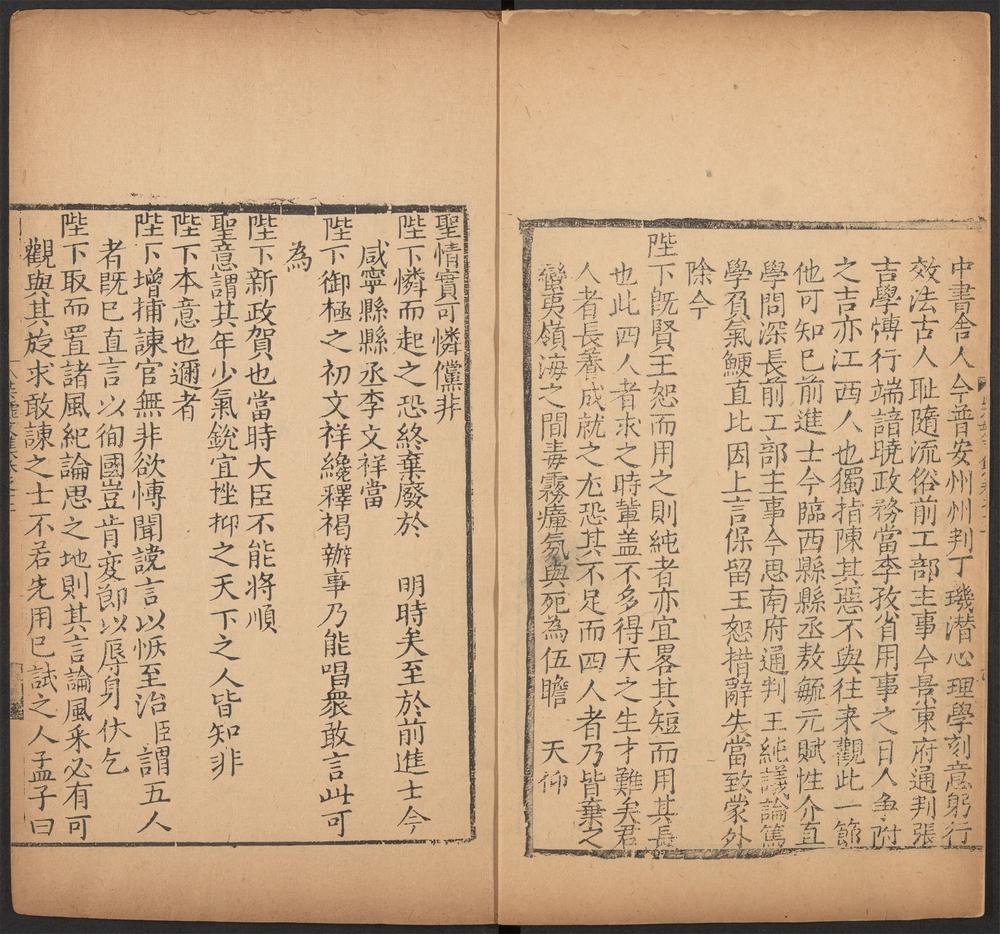 中書舍人今普安州州判丁璣潜心理學刻意躬行
效法古人耻隨流俗前工部主事今景東府通判張
吉學愽行端諳暁政務當李孜省用事之日人争附
之吉亦江西人也獨指陳其惡不與往来觀此一節
他可知巳前進士今臨西縣縣丞敖毓元賦性介直
學問深長前工部主事今思南府通判王純議論篤
學負氣鯁直比因上言保留王恕措辭失當致蒙外
除今
陛下既賢王恕而用之則純者亦宜畧其短而用其長
也此四人者求之時輩盖不多得天之生才難矣君
人者長養成就之尤恐其不足而四人者乃皆棄之
蠻夷嶺海之間毒霧瘴氛與死為伍瞻　天仰
聖情實可憐儻非
陛下憐而起之恐終棄廢於　明時矣至於前進士今
咸寧縣縣丞李文祥當
陛下御極之初文祥纔釋褐辦事乃能唱衆敢言此可
為
陛下新政賀也當時大臣不能將順
聖意謂其年少氣銳宜挫抑之天下之人皆知非
陛下本意也邇者
陛下增補諫官無非欲愽聞讜言以恢至治臣謂五人
者既巳直言以徇國豈肯変節以辱身伏乞
陛下取而置諸風紀論思之地則其言論風采必有可
觀與其旋求敢諫之士不若先用巳試之人孟子曰